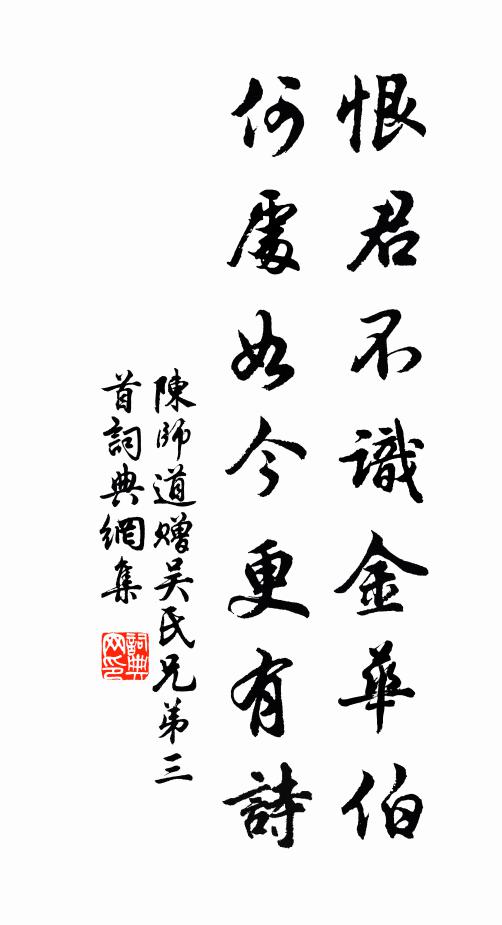 恨君不識金華伯
何處如今更有詩
陳師道贈吳氏兄弟三
首詞典網集
詞典網印